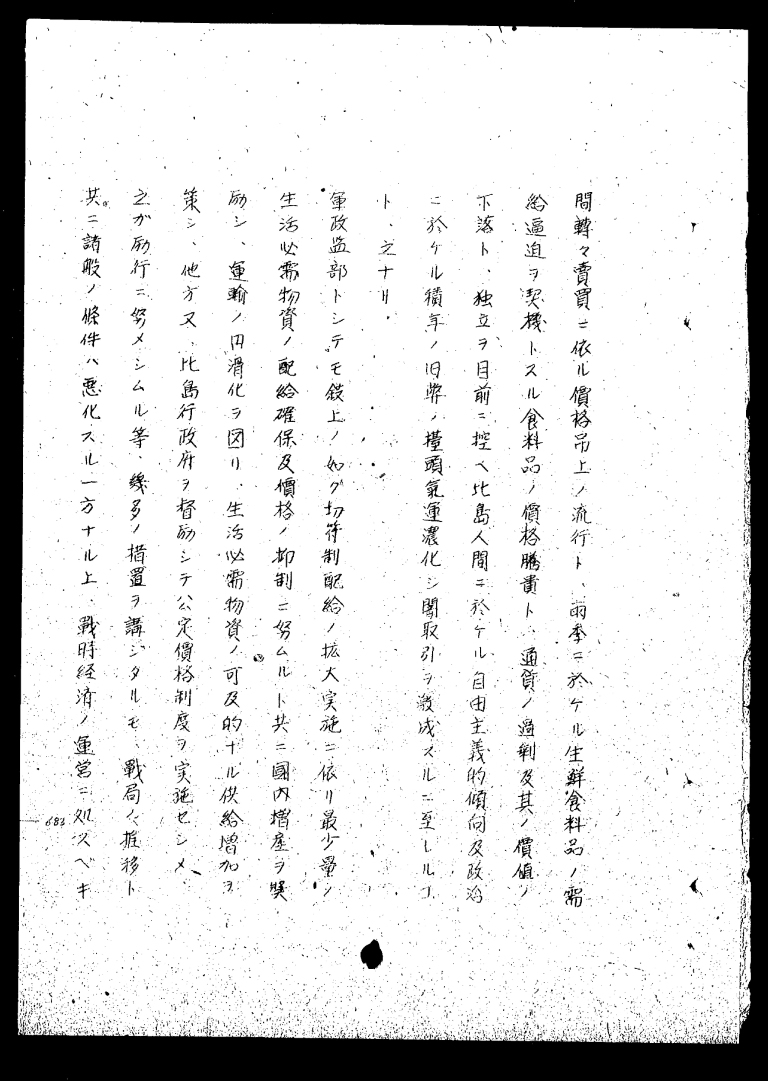 間轉々賣買ニ依ル價格吊上ノ流行ト、雨季ニ於ケル生鮮食料品ノ需
給逼迫ヲ契機トスル食料品ノ價格騰貴ト、通貨ノ過剰及其ノ價値ノ
下落ト、独立ヲ目前ニ控ヘ比島人間ニ於ケル自由主義的傾向及政治
ニ於ケル積年ノ旧弊ノ擡頭氣運濃化シ闇取引ヲ激成スルニ至レルコ
ト、之ナリ、
軍政監部トシテモ叙上ノ如ク切符制配給ノ拡大実施ニ依リ最少量ノ
生活必需物資ノ配給確保及價格ノ抑制ニ努ムルト共ニ國内増産ヲ奨
励シ、運輸ノ円滑化ヲ図リ、生活必需物資ノ可及的ナル供給増加ヲ
策シ、他方又、比島行政府ヲ督励シテ公定價格制度ヲ実施セシメ、
之ガ励行ニ努メシムル等、幾多ノ措置ヲ講ジタルモ、戰局ノ推移ト
共ニ諸般ノ條件ハ悪化スル一方ナル上、戰時経済ノ運営ニ処スベキ
683